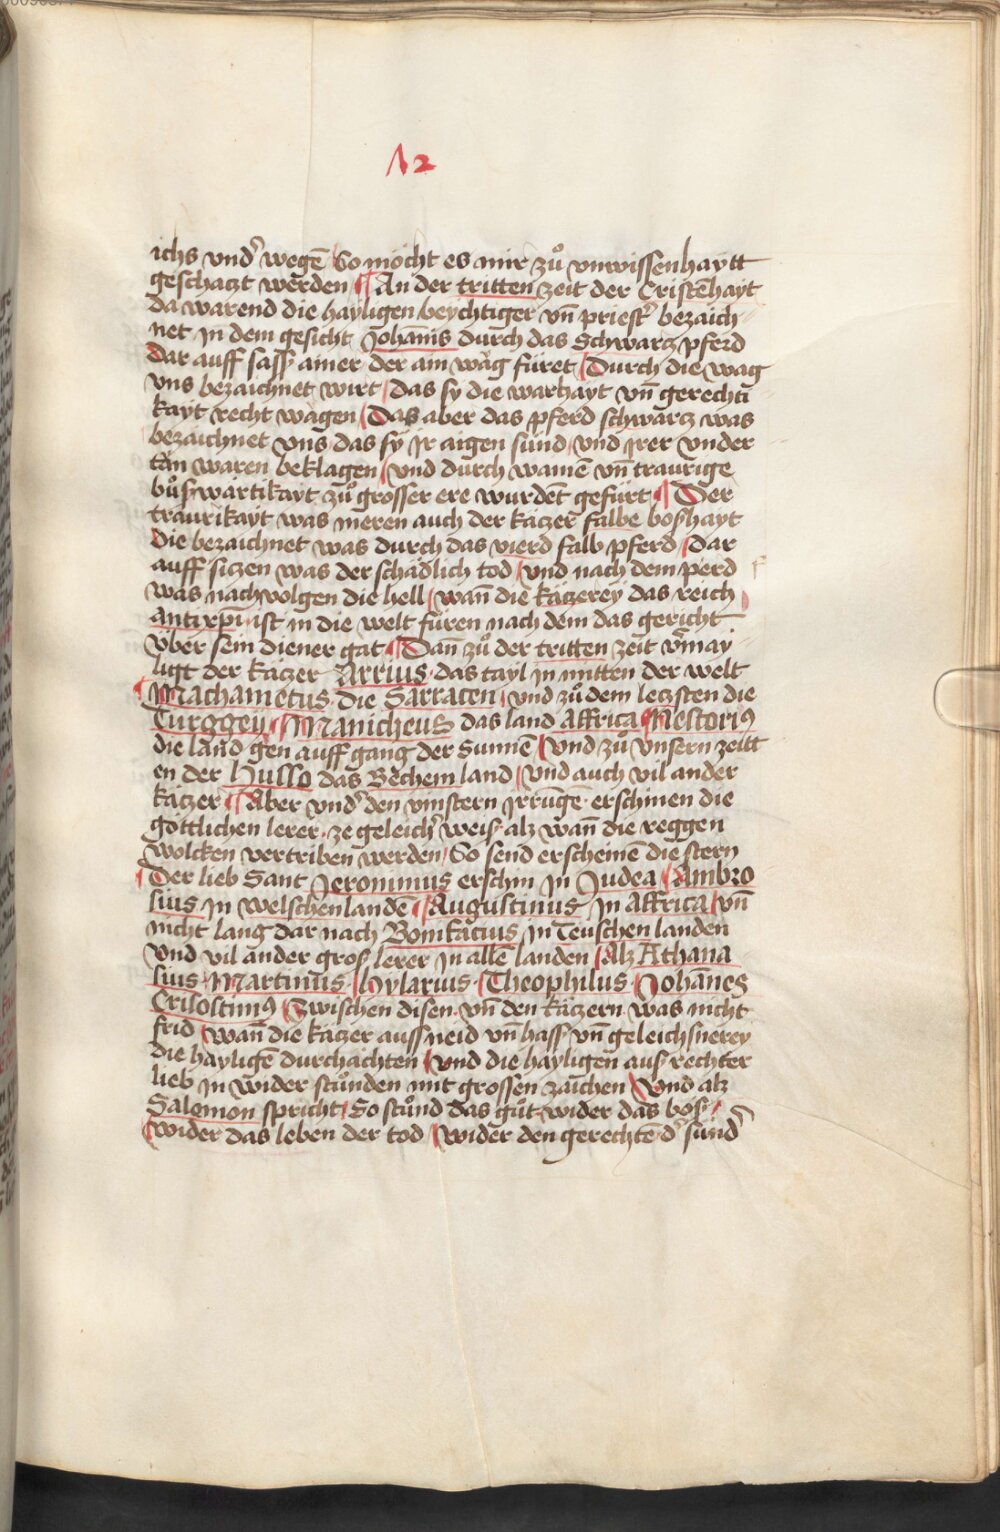 12
ichs vnd̾ wegē So möcht es mir zů vnwissenhaytt
geschaczt werden ¶ An der tritten zeit der Cristēhayt
da warend die hayligen beychtiger vn̄ priest̾ bezaich
net in dem gesicht Johānis durch das Schwarcz pferd
dar auff sass ainer der ain wäg füret / Durch die wag
vns bezaichnet wirt / das sy die warhayt vn̄ gerechti
kayt recht wägen / Das aber das pferd schwarcz was
bezaichnet vns das sy ir aigen sünd / vnd irer vnder
tan waren beklagen / vnd durch wainē vn̄ traurige
bůszwärtikayt zů grosser ere wurdēt gefürt ¶ Der
traurikayt was meren auch der käczer falbe boszhayt
Die bezaichnet was durch das vierd falb pferd / Dar
auff siczen was der schädlich tod / vnd nach dem perd
was nachuolgen die hell / wan̄ die käczerey das reich
antixp̄i ist in die welt füren nach dem das gericht
Vber sein diener gat ¶ Dan̄ zů der tritten zeit v̾may
ligt der käczer Arrius das tayl in mitten der welt
¶ Machametus die Sarracen / vnd zů dem leczsten die
Turggen ¶ Manicheus das land Affrica ¶ Nestoriꝰ
die land gen auff gang der Sunnē / vnd zů vnsern zeitt
en der Husso das Bechem land / vnd auch vil ander
käczer ¶ Aber vnd̾ den vinstern irrūgē erschinen die
göttlichen lerer ze geleich̾ weisz alz wan̄ die reggen
wolcken vertriben werden / So send erscheinē die stern
¶ Der lieb Sant Jeronimus erschin in Judea / Ambro
sius in welschen landē ¶ Augustinus in Affrica / vn̄
nicht lang dar nach Bonifacius in Teuschen landen
vnd vil ander grosz lerer in allē landen / Alz Athana
sius Martinus / Hylarius / Theophilus Johānes
Crisostimꝰ / Zwischen disen vn̄ den käczern was nicht
frid / wan̄ die käczer aussz neid vn̄ hassz vn̄ geleichsnerey
die hayligē durchächten / vnd die hayligen ausz rechter
lieb in wider stůnden mit grossen zaichen / Vnd alz
Salemon spricht / So stůnd das gůt wider das bösz /
wider das leben der tod / wider den gerechtē d̾ sünd̾